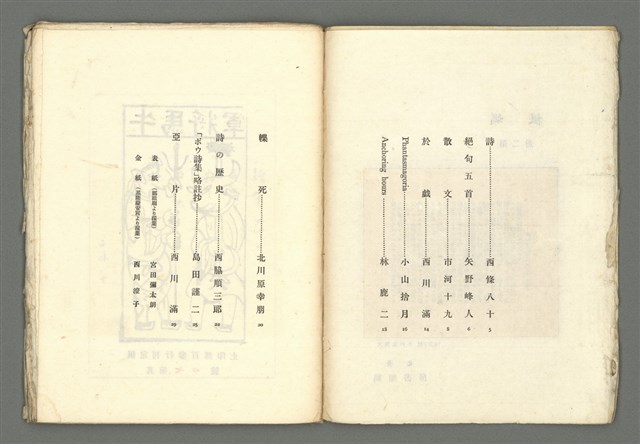 詩……………西條八十 3
絕句五首……………矢野峰人 6
散文……………市河十九 8
於戲……………西川滿 14
Phantasmagoria……………小山捨月 16
Anchoring hours……………林鹿二 18
轢死……………北川原幸朋 20
詩の歷史……………西脇順三郎 22
「ポウ詩集」略註抄……………島田謹二 25
亞片……………西川滿 29
表紙 宮田彌太郎
金紙 西川澄子
牛馬將軍